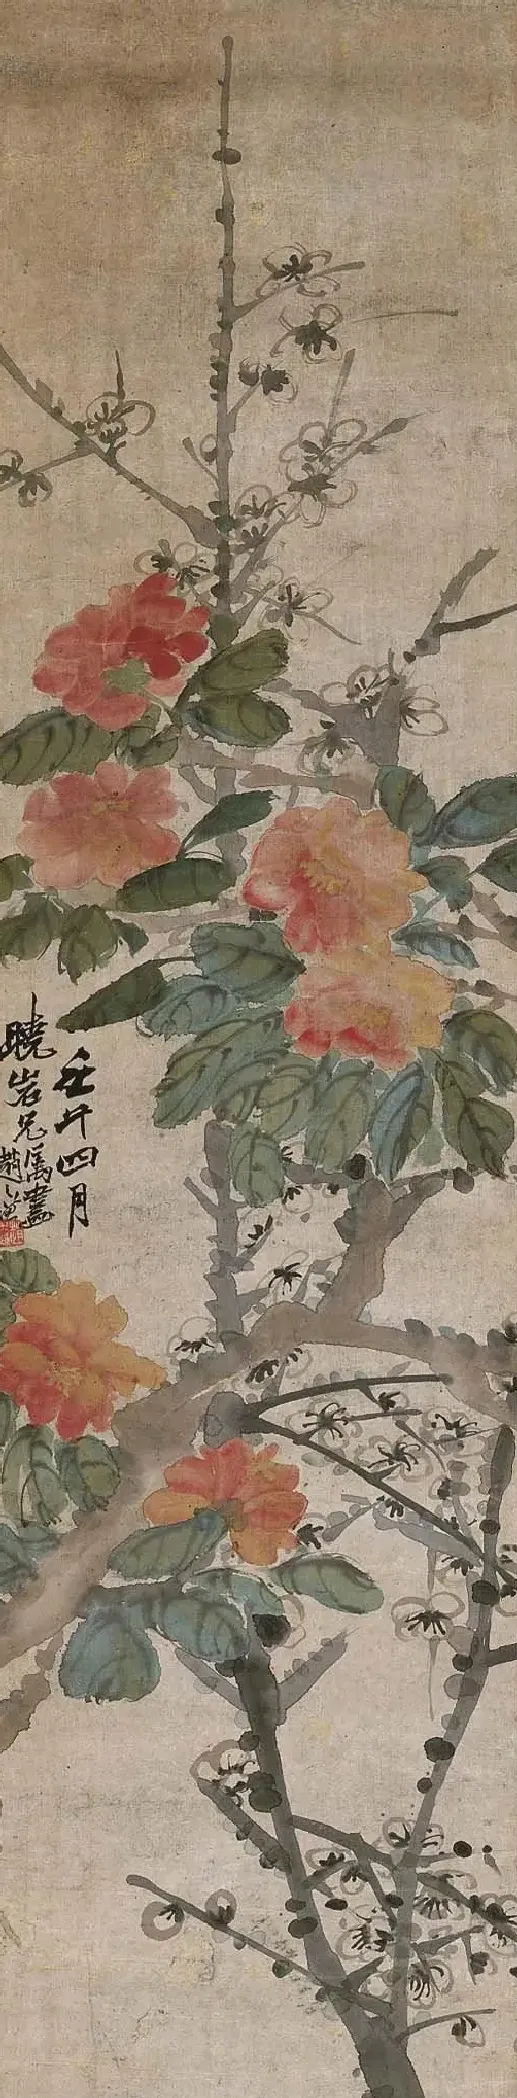 壬午四月
曉岩兄属畫
趙之謙